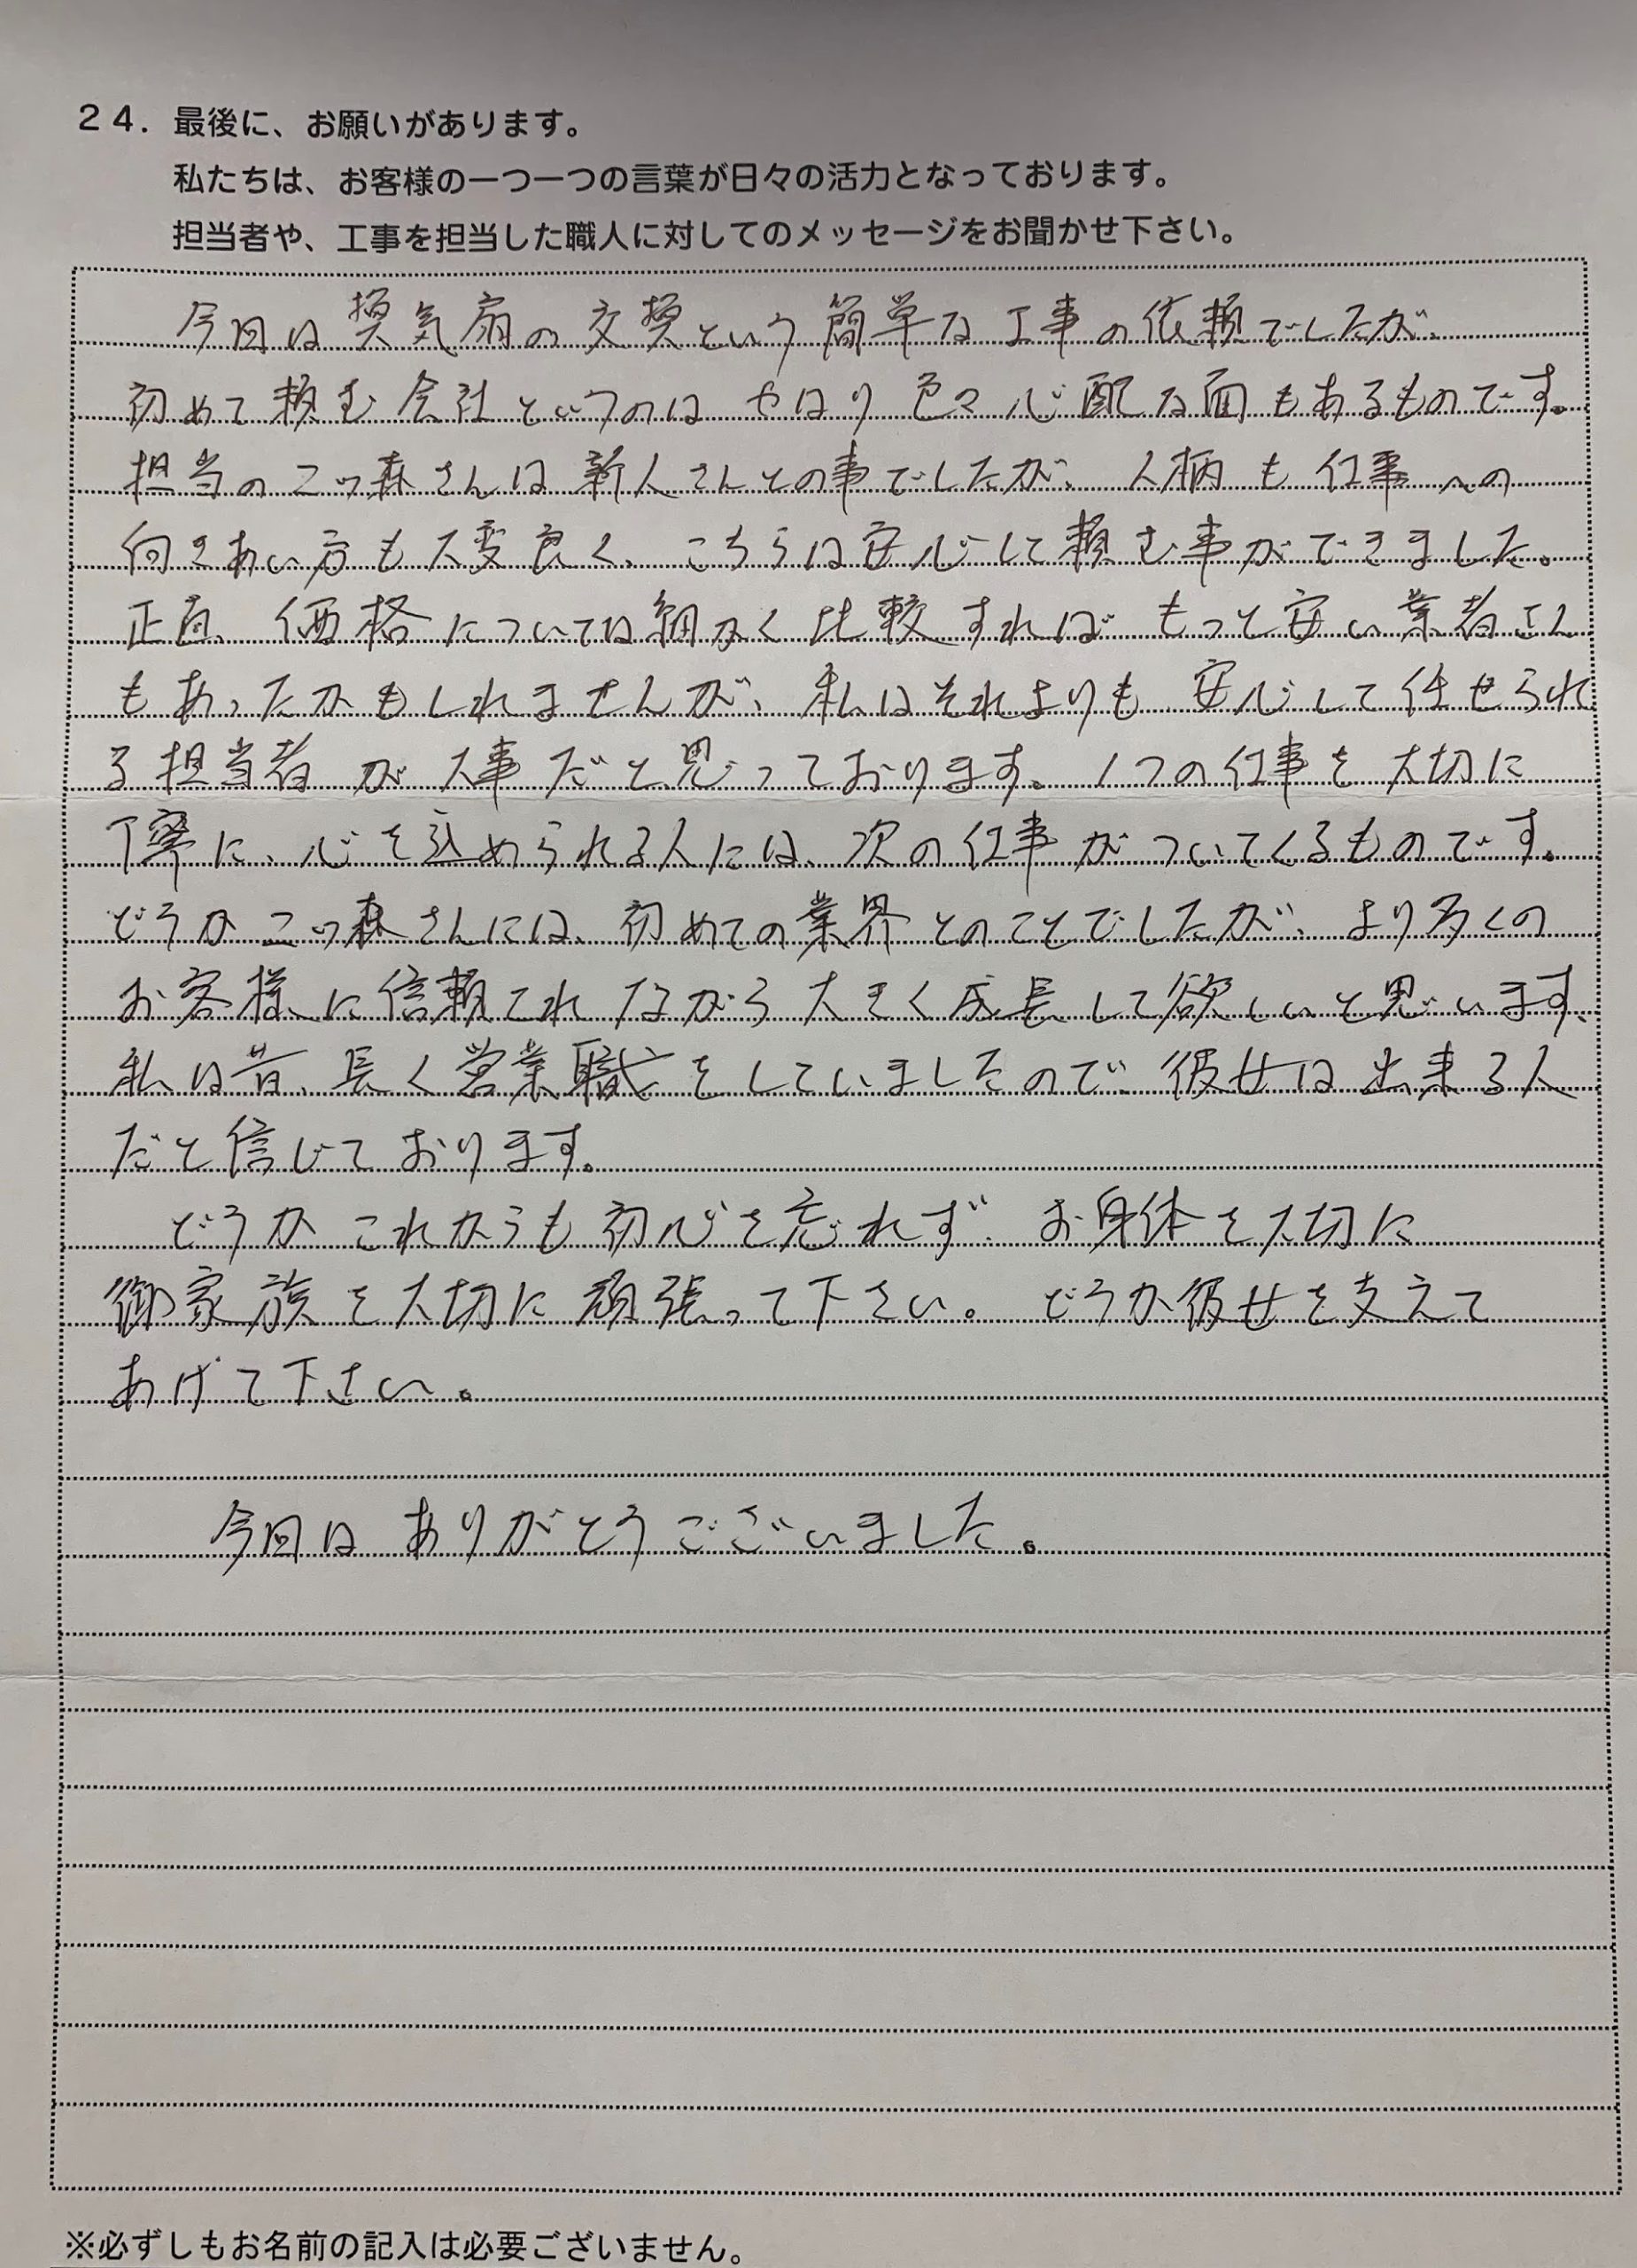 24. 最後に、お願いがあります。
私たちは、お客様の一つ一つの言葉が日々の活力となっております。
担当者や、工事を担当した職人に対してのメッセージをお聞かせ下さい。
今回は換気扇の交換という簡単な工事の依頼でしたが、
初めて頼む会社というのはやはり色々心配な面もあるものです。
担当の二ッ森さんは新人さんとの事でしたが、人柄も仕事への
向きあい方も大変良く、こちらは安心して頼む事ができました。
正直、価格については細かく比較すればもっと安い業者さん
もあったかもしれませんが、私はそれよりも安心して任せられ
る担当者が大事だと思っております。1つの仕事を大切に
丁寧に、心を込められる人には、次の仕事がついてくるものです。
どうか二ッ森さんには、初めての業界とのことでしたが、より多くの
お客様に信頼されながら大きく成長して欲しいと思います。
私は昔、長く営業職をしていましたので、彼女は出来る人
だと信じております。
どうかこれからも初心を忘れず、お身体を大切に
御家族を大切に頑張って下さい。どうか彼女を支えて
あげて下さい。
今回はありがとうございました。
※必ずしもお名前の記入は必要ございません。